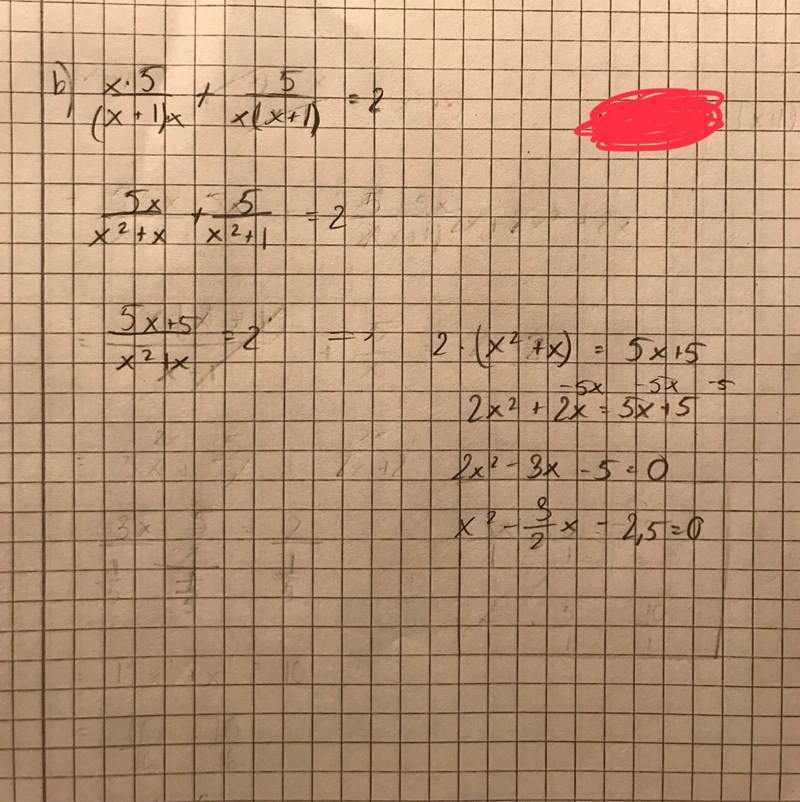 b) x·5/(x+1)x + 5/x(x+1) = 2
5x/x²+x + 5/x²+1 = 2
5x+5/x²+x = 2 => 2·(x²+x) = 5x+5
-5x -5x -5
2x² + 2x = 5x+5
2x² - 3x - 5 = 0
x² - 3/2 x - 2,5 = 0